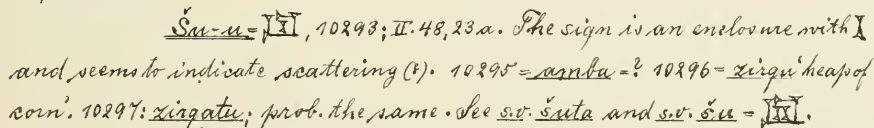 Šu-u = , 10293; II. 48, 23a. The sign is an enclosure with
and seems to indicate scattering (?). 10295 = amba = ? 10296 = zirqu 'heap of
corn'. 10297: zirqatu; prob. the same. See s.v. šuta and s.v. šu = .